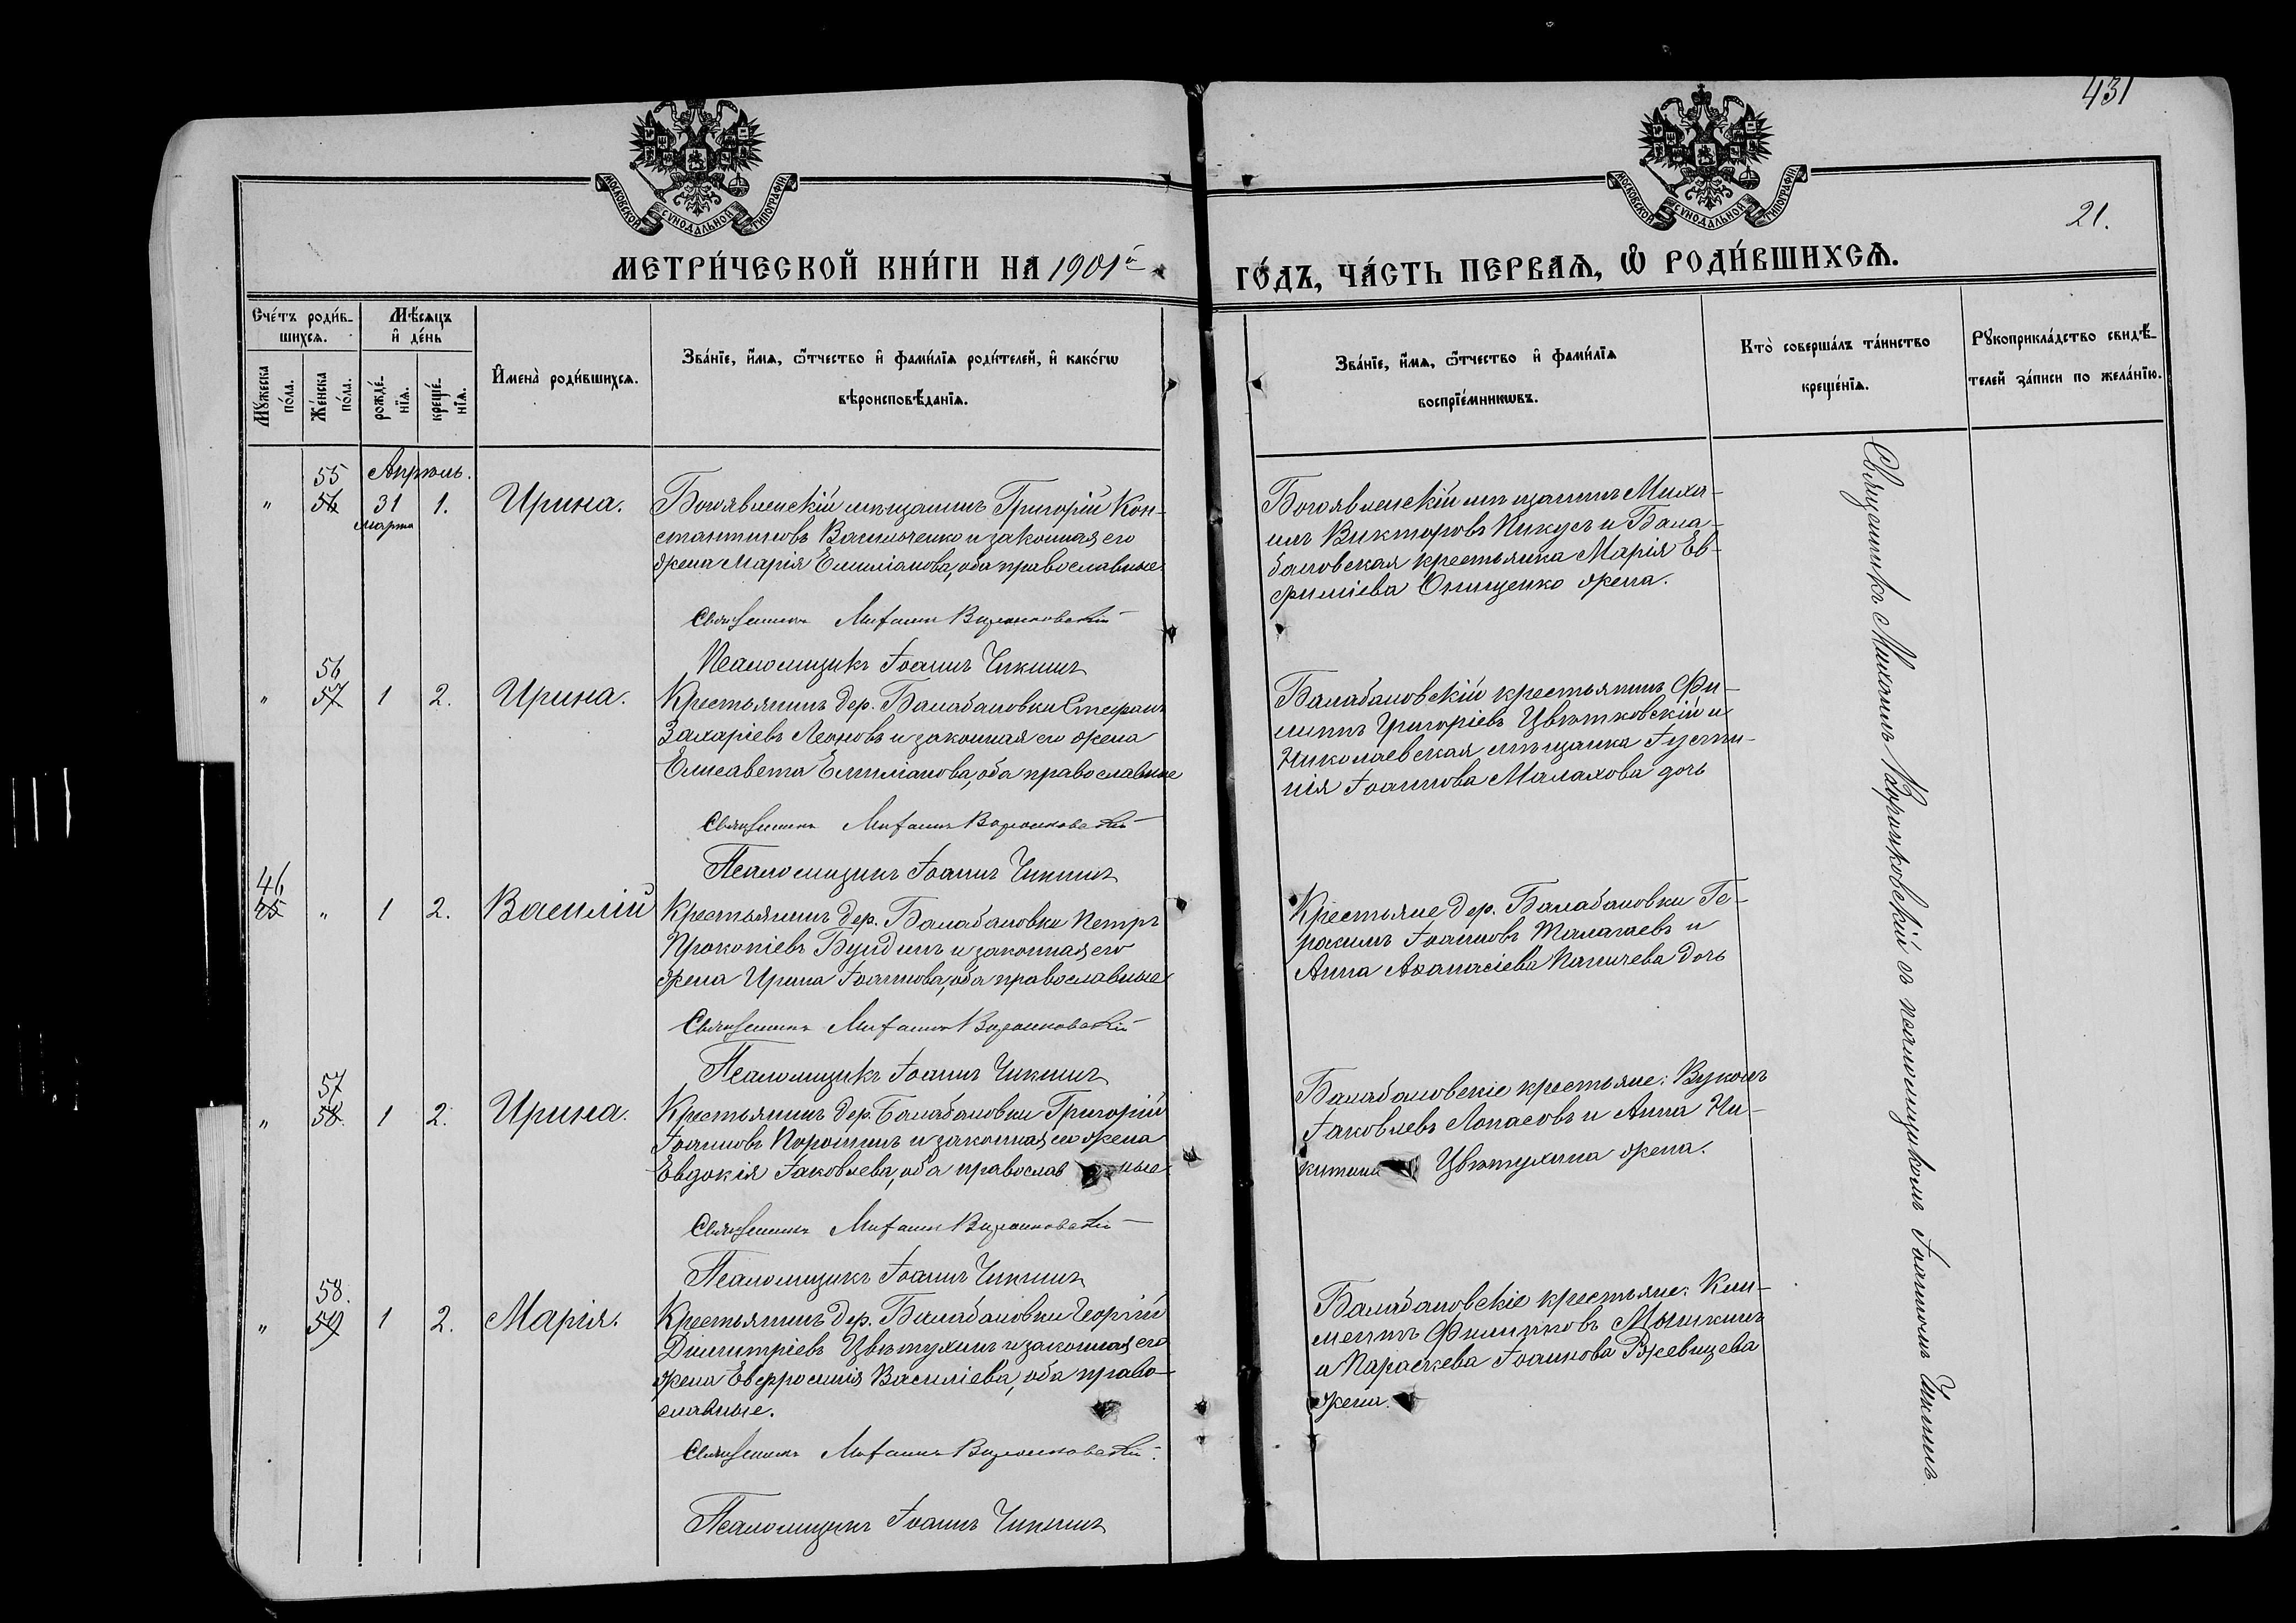 431
МОСКОВСКОЙ СѴНОДАЛЬНОЙ ТИПОГРАФІИ
МОСКОВСКОЙ СѴНОДАЛЬНОЙ ТИПОГРАФІИ
21.
МЕТРИ́ЧЕСКОЙ КНИ́ГИ НА 1901й
ГО́ДЪ, ЧА́СТЬ ПЕРВАѦ, Ѡ҆ РОДИ́ВШИХСѦ.
Сче́тъ роди́в-
шихся.
Мѣ́сяцъ
и҆ де́нь
Му́жеска по́ла.
Же́нска по́ла.
рожде́-нїя.
креще́-нїя.
И҆мена̀ роди́вшихся.
Зва́нїе, и҆́мя, ѻ҆́тчество и҆ фами́лїя роди́телей, и҆ како́гѡ
вѣроисповѣ́данїя.
Зва́нїе, и҆́мя, ѻ҆́тчество и҆ фами́лїя
воспрїе́мникѡвъ.
Кто̀ соверша́лъ та́инство
креще́нїя.
Рꙋкоприкла́дство свидѣ́-
телей за́писи по жела́нїю.
55 Апрѣль.
" 56 31 1. Ирина.
марта
Богоявленскій мѣщанинъ Григорій Кон-
стантиновъ Васильченко и законная его
жена Марія Емиліанова, оба православные
Священникъ Михаилъ Воронковскій
Псаломщикъ Іоаннъ Чикинъ
Богоявленскій мѣщанинъ Миха-
илъ Викторовъ Пикусъ и Бала-
бановская крестьянка Марія Ев-
фиміева Онищенко жена.
56
" 57 1 2. Ирина.
Крестьянинъ дер. Балабановки Стефанъ
Захаріевъ Леоновъ и законная его жена
Елисавета Емиліанова, оба православные
Священникъ Михаилъ Воронковскій
Псаломщикъ Іоаннъ Чикинъ
Балабановскій крестьянинъ Фи-
липпъ Григоріевъ Цвѣтковскій и
Николаевская мѣщанка Іусти-
нія Іоаннова Малахова дочь
46
45 " 1 2. Василій
Крестьянинъ дер. Балабановки Петръ
Прокопіевъ Бундинъ и законная его
жена Ирина Іоаннова, оба православные
Священникъ Михаилъ Воронковскій
Псаломщикъ Іоаннъ Чикинъ
Крестьяне дер. Балабановки Ге-
расимъ Іоанновъ Малагаевъ и
Анна Аѳанасіева Паничева дочь
57
" 58. 1 2. Ирина.
Крестьянинъ дер. Балабановки Григорій
Іоанновъ Порошинъ и законная его жена
Евдокія Іаковлева, оба православные
Священникъ Михаилъ Воронковскій
Псаломщикъ Іоаннъ Чикинъ
Балабановскіе крестьяне: Вуколъ
Іаковлевъ Лопасовъ и Анна Ни-
китина Цвѣтухина жена.
58.
" 59 1 2. Марія.
Крестьянинъ дер. Балабановки Георгій
Димитріевъ Цвѣтухинъ и законная его
жена Евфросинія Василіева, оба право-
славные.
Священникъ Михаилъ Воронковскій
Псаломщикъ Іоаннъ Чикинъ
Балабановскіе крестьяне: Кли-
ментъ Филипповъ Мышкинъ
и Параскева Іоаннова Ржевицева
жена.
Священникъ Михаилъ Воронковскій съ псаломщикомъ Іоанномъ Чикинымъ